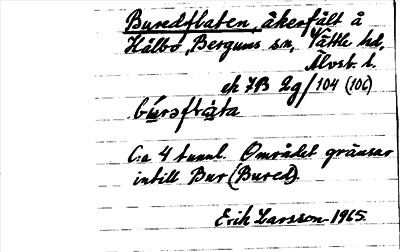 Buredflaten, åkerfält å
Hålbo, Bergums sn, Vättle hd,
Älvsb. l.
ek 7B 2g/104 (106)
C:a 4 tunnl. Området gränsar
intill Bur (Bured).
Erik Larsson 1965